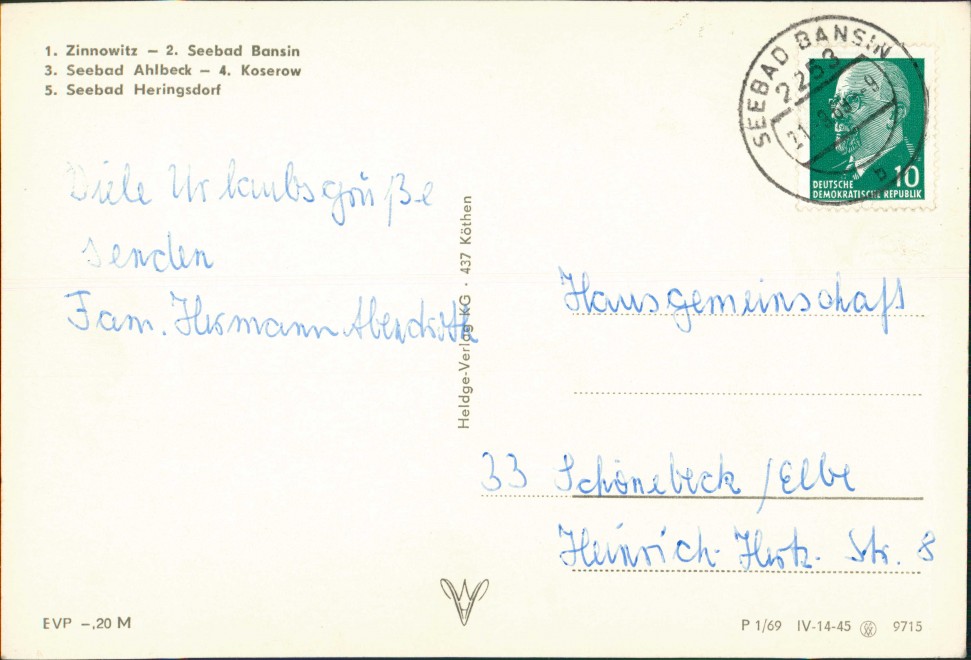 1. Zinnowitz – 2. Seebad Bansin
3. Seebad Ahlbeck – 4. Koserow
5. Seebad Heringsdorf
SEEBAD BANSIN
2253
DEUTSCHE 10
DEMOKRATISCHE REPUBLIK
Viele Urlaubsgrüße
senden
Fam. Hermann Abendroth
Heldge-Verlag KG · 437 Köthen
Hausgemeinschaft
33 Schönebeck /Elbe
Heinrich-Hertz-Str. 8
EVP –,20 M
P 1/69 IV-14-45 9715